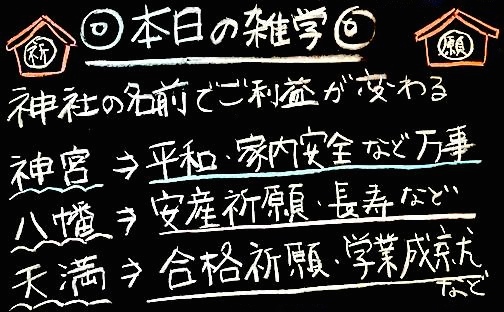 祈 ◎本日の雑学◎ 願
神社の名前でご利益が変わる
神宮⇒平和・家内安全など万事
八幡⇒安産祈願・長寿など
天満⇒合格祈願・学業成就
など